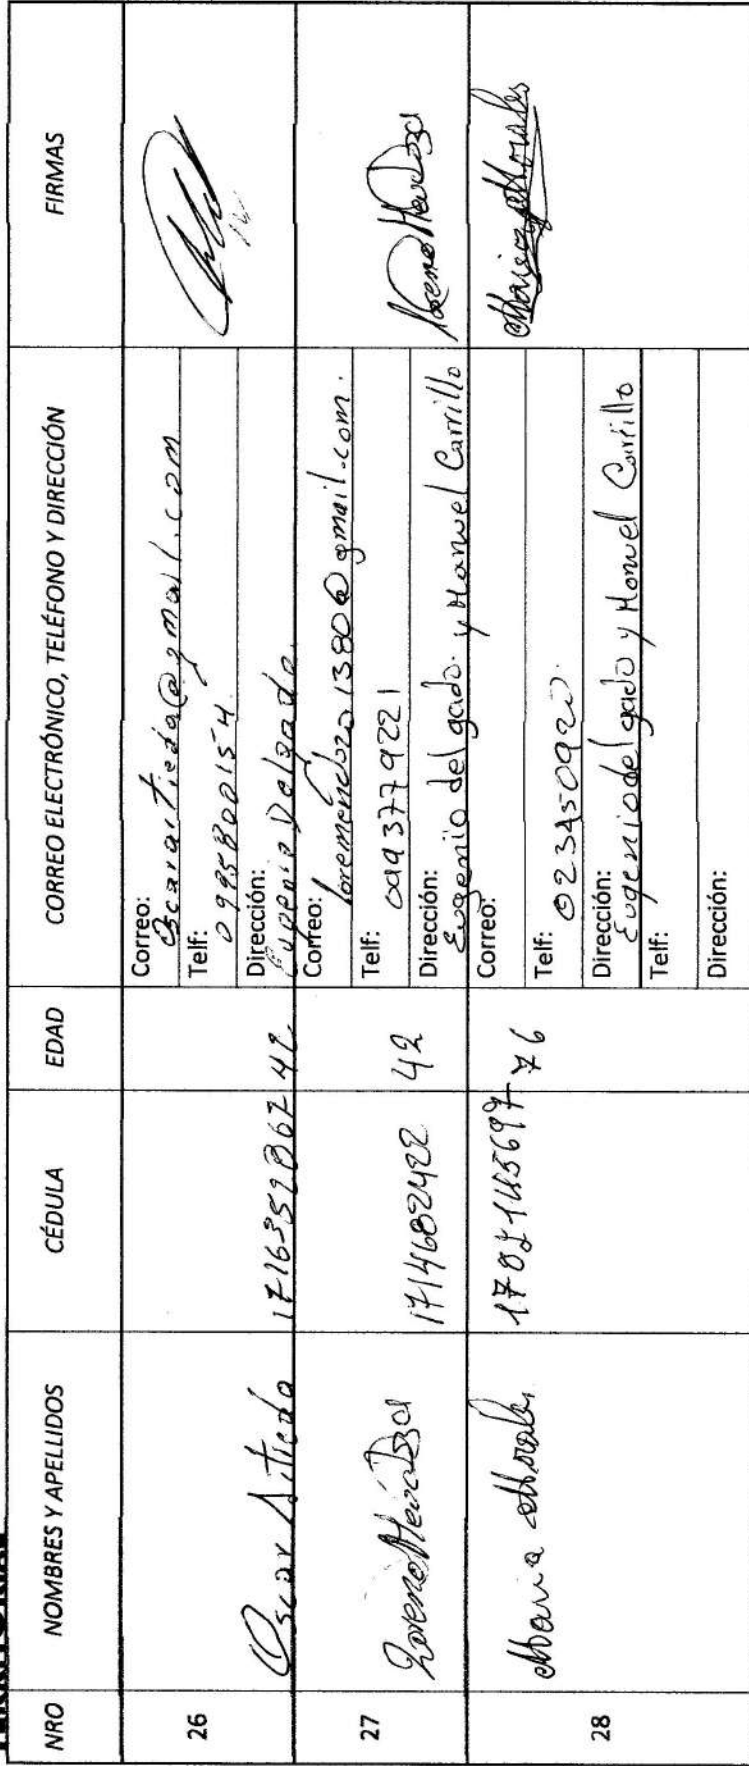 NRO NOMBRES Y APELLIDOS CÉDULA EDAD CORREO ELECTRÓNICO, TELÉFONO Y DIRECCIÓN FIRMAS
26 Oscar Artieda 42
Correo: Oscarartieda@gmail.com
Telf: 0995800154
Dirección: Eugenio Delgado
27 Lorena Mendoza 1714682422 42 Lorena Mendoza
Correo: loremendoza1380@gmail.com.
Telf: 0993779221
Dirección: Eugenio delgado y Manuel Carrillo
28 Maria Morales 76 Morales
Correo:
Telf: 023450920
Dirección: Eugenio delgado y Manuel Carrillo
Telf:
Dirección: